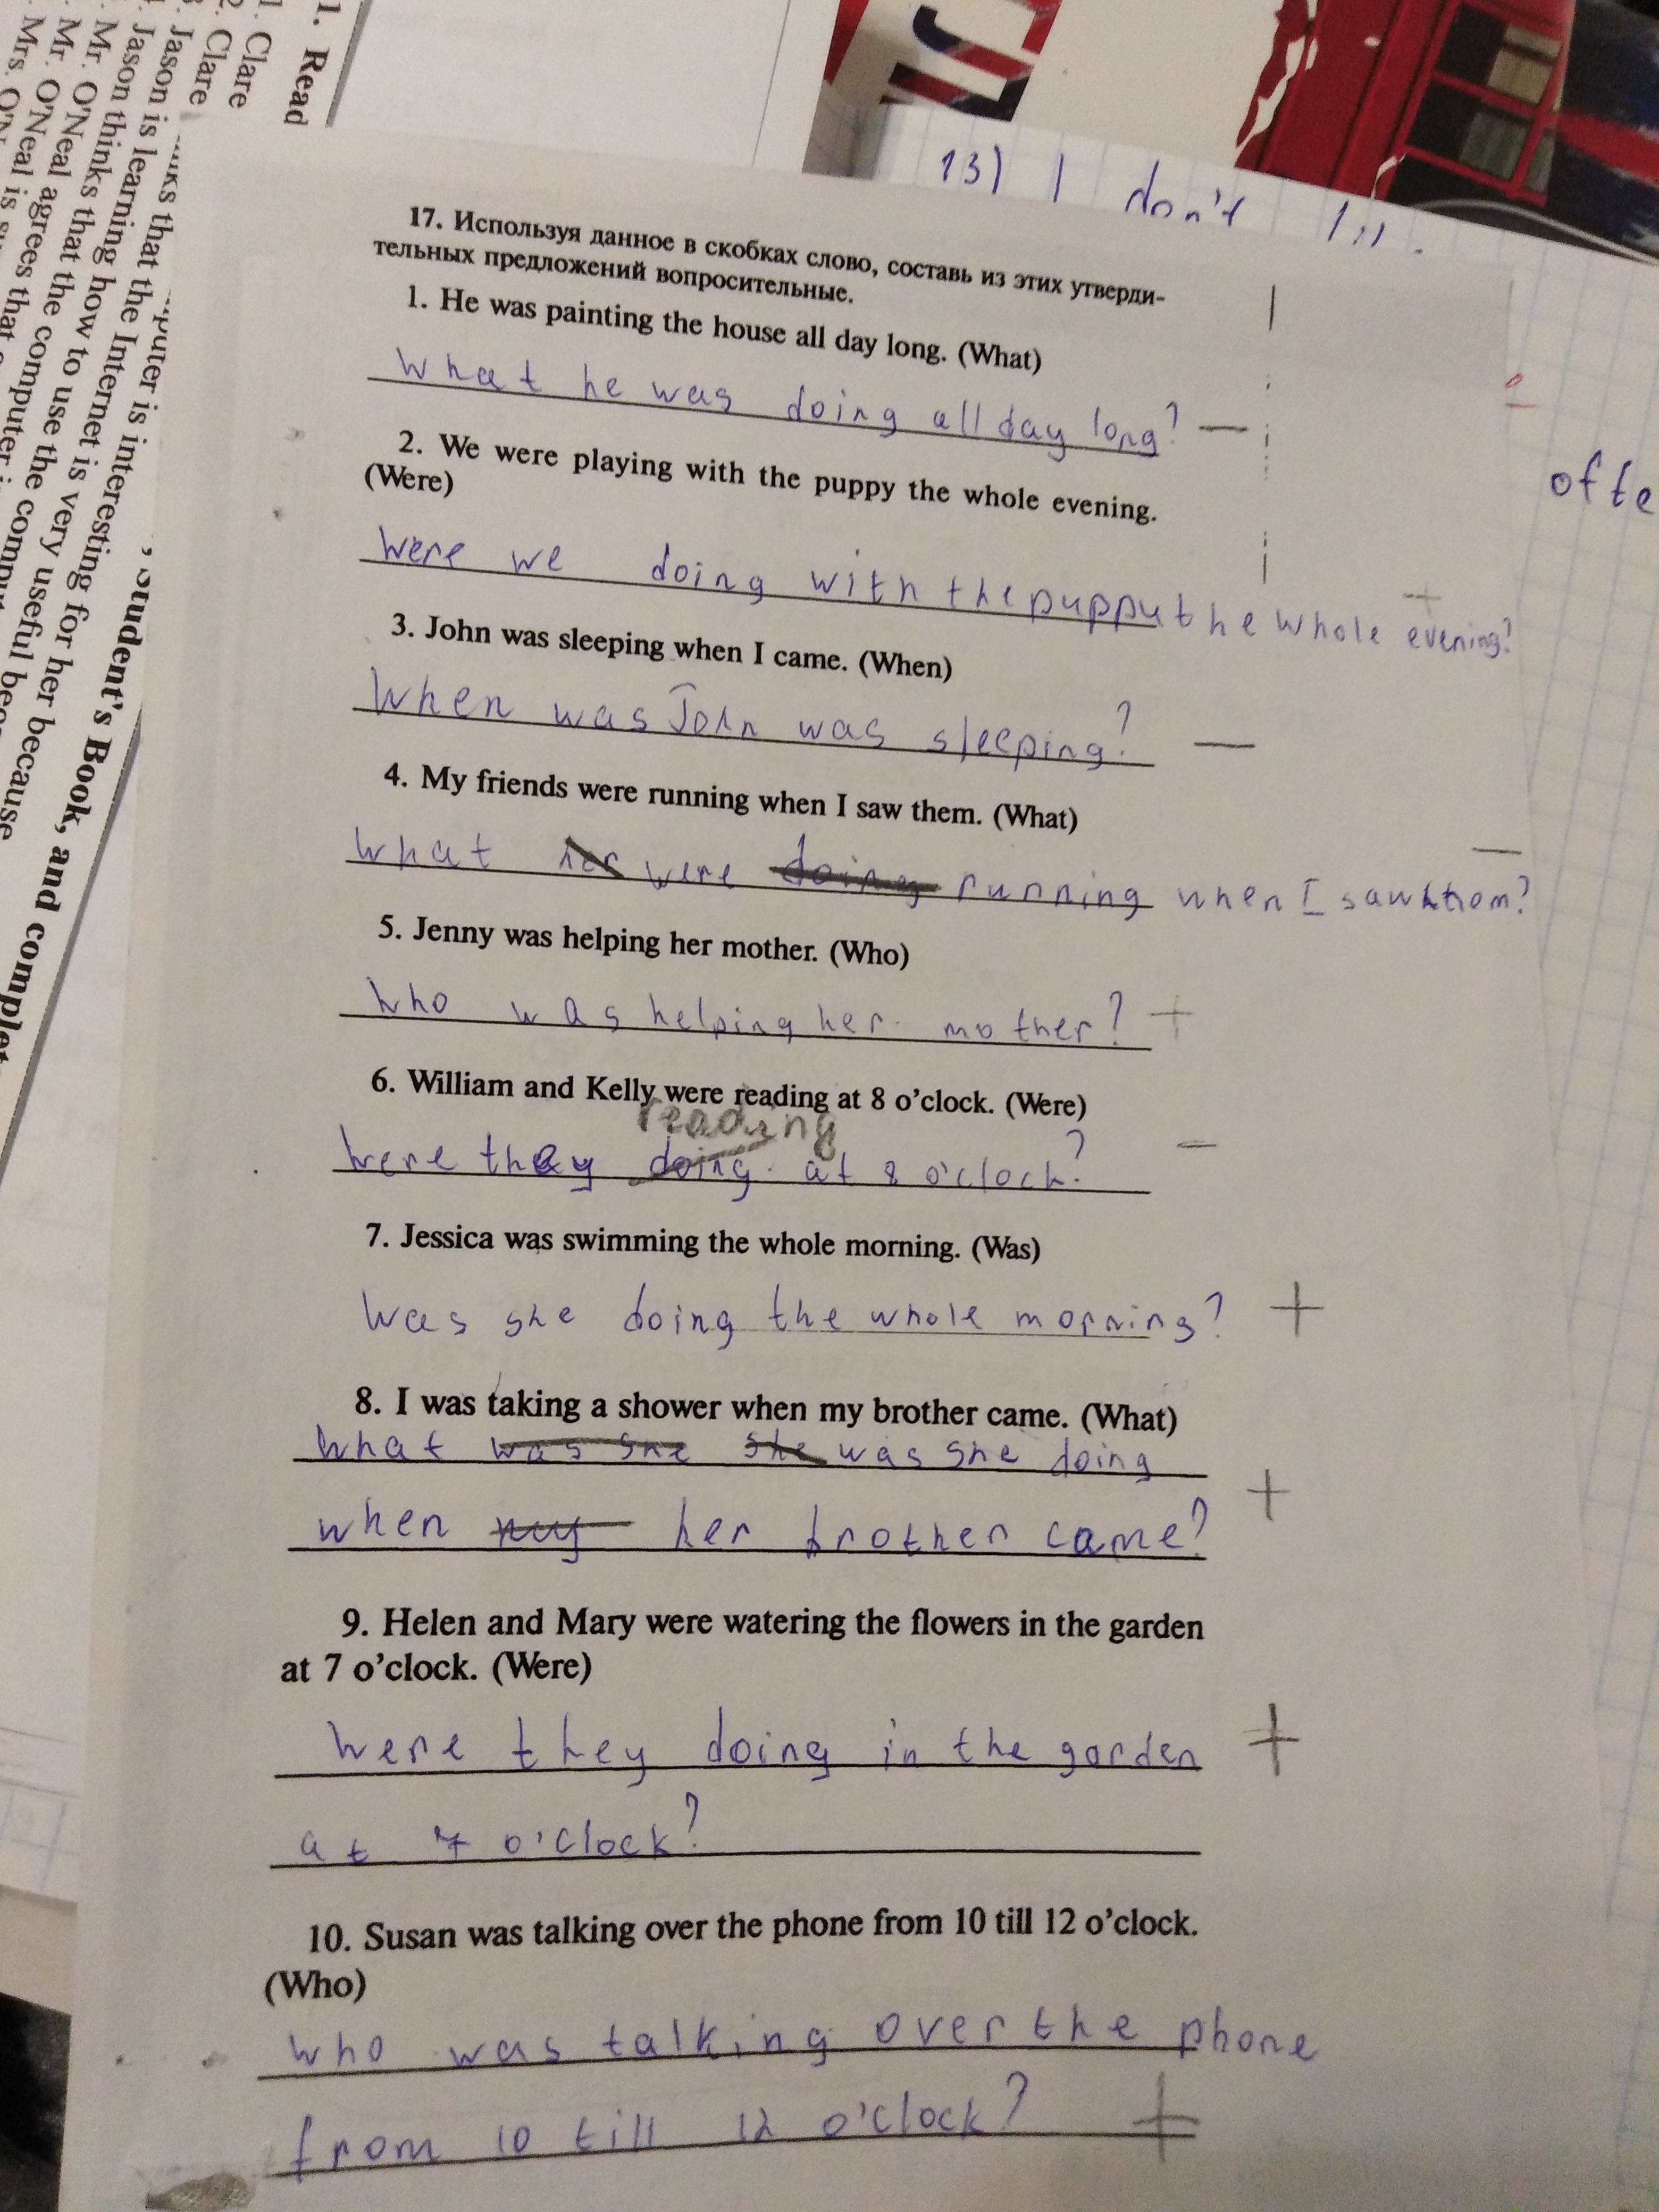 1. Read
1. Clare
2. Clare
Jason is learning how to use the computer
13) I don't
offe
17. Используя данное в скобках слово, составь из этих утверди-
тельных предложений вопросительные.
1. He was painting the house all day long. (What)
What he was doing all day long? —
2. We were playing with the puppy the whole evening.
(Were)
Were we doing with the puppy the whole evening? +
3. John was sleeping when I came. (When)
When was John was sleeping? —
4. My friends were running when I saw them. (What)
What were doing running when I saw them? —
5. Jenny was helping her mother. (Who)
Who was helping her mother? +
6. William and Kelly were reading at 8 o'clock. (Were)
reading
Were they doing at 8 o'clock? —
7. Jessica was swimming the whole morning. (Was)
Was she doing the whole morning? +
8. I was taking a shower when my brother came. (What)
What was she she was she doing
when my her brother came? +
9. Helen and Mary were watering the flowers in the garden
at 7 o'clock. (Were)
Were they doing in the garden +
at 7 o'clock?
10. Susan was talking over the phone from 10 till 12 o'clock.
(Who)
Who was talking over the phone
from 10 till 12 o'clock? +